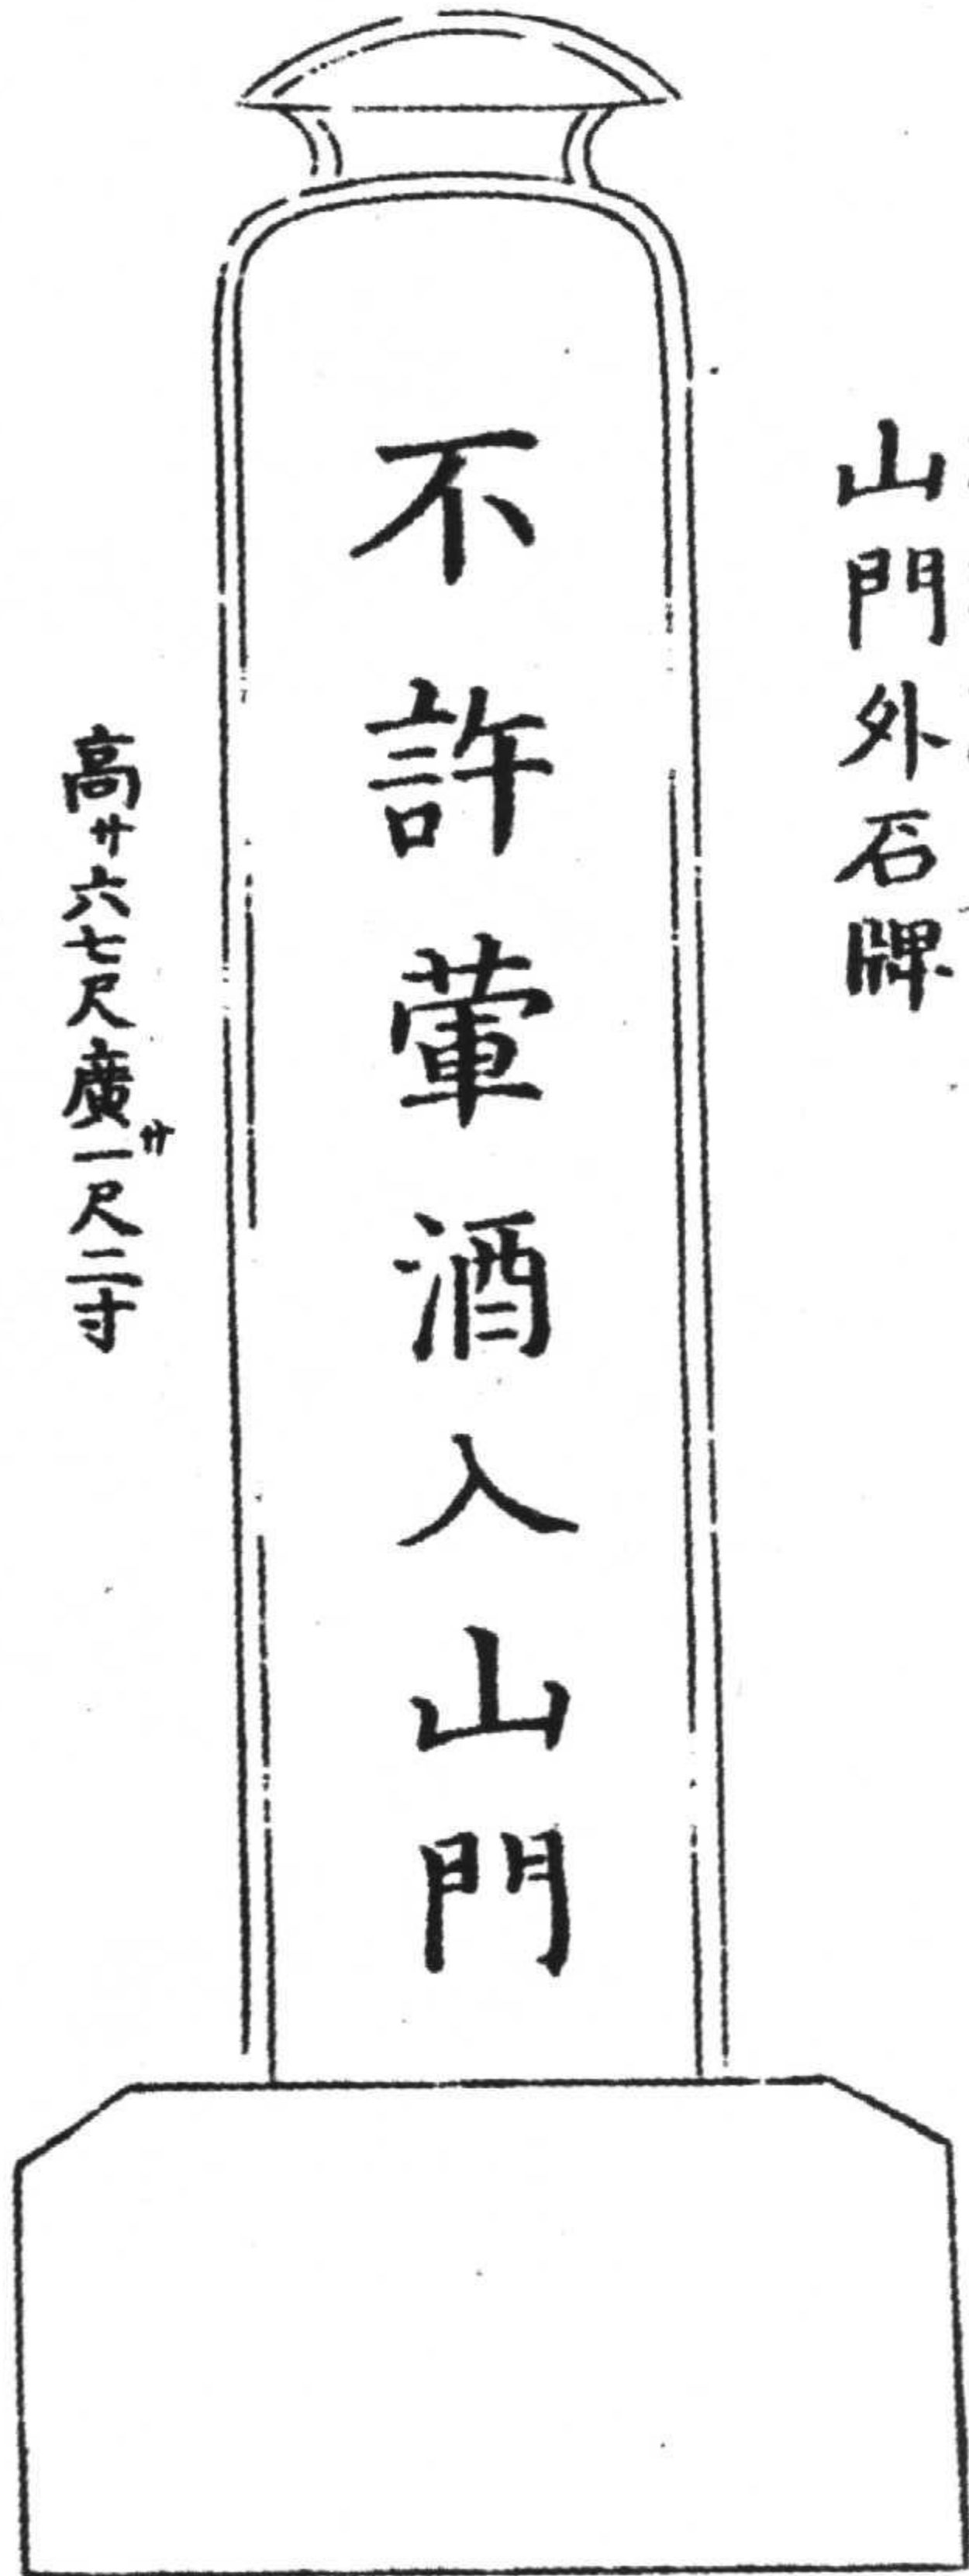 山門外石牌
不許葷酒入山門
高サ六七尺廣サ一尺二寸